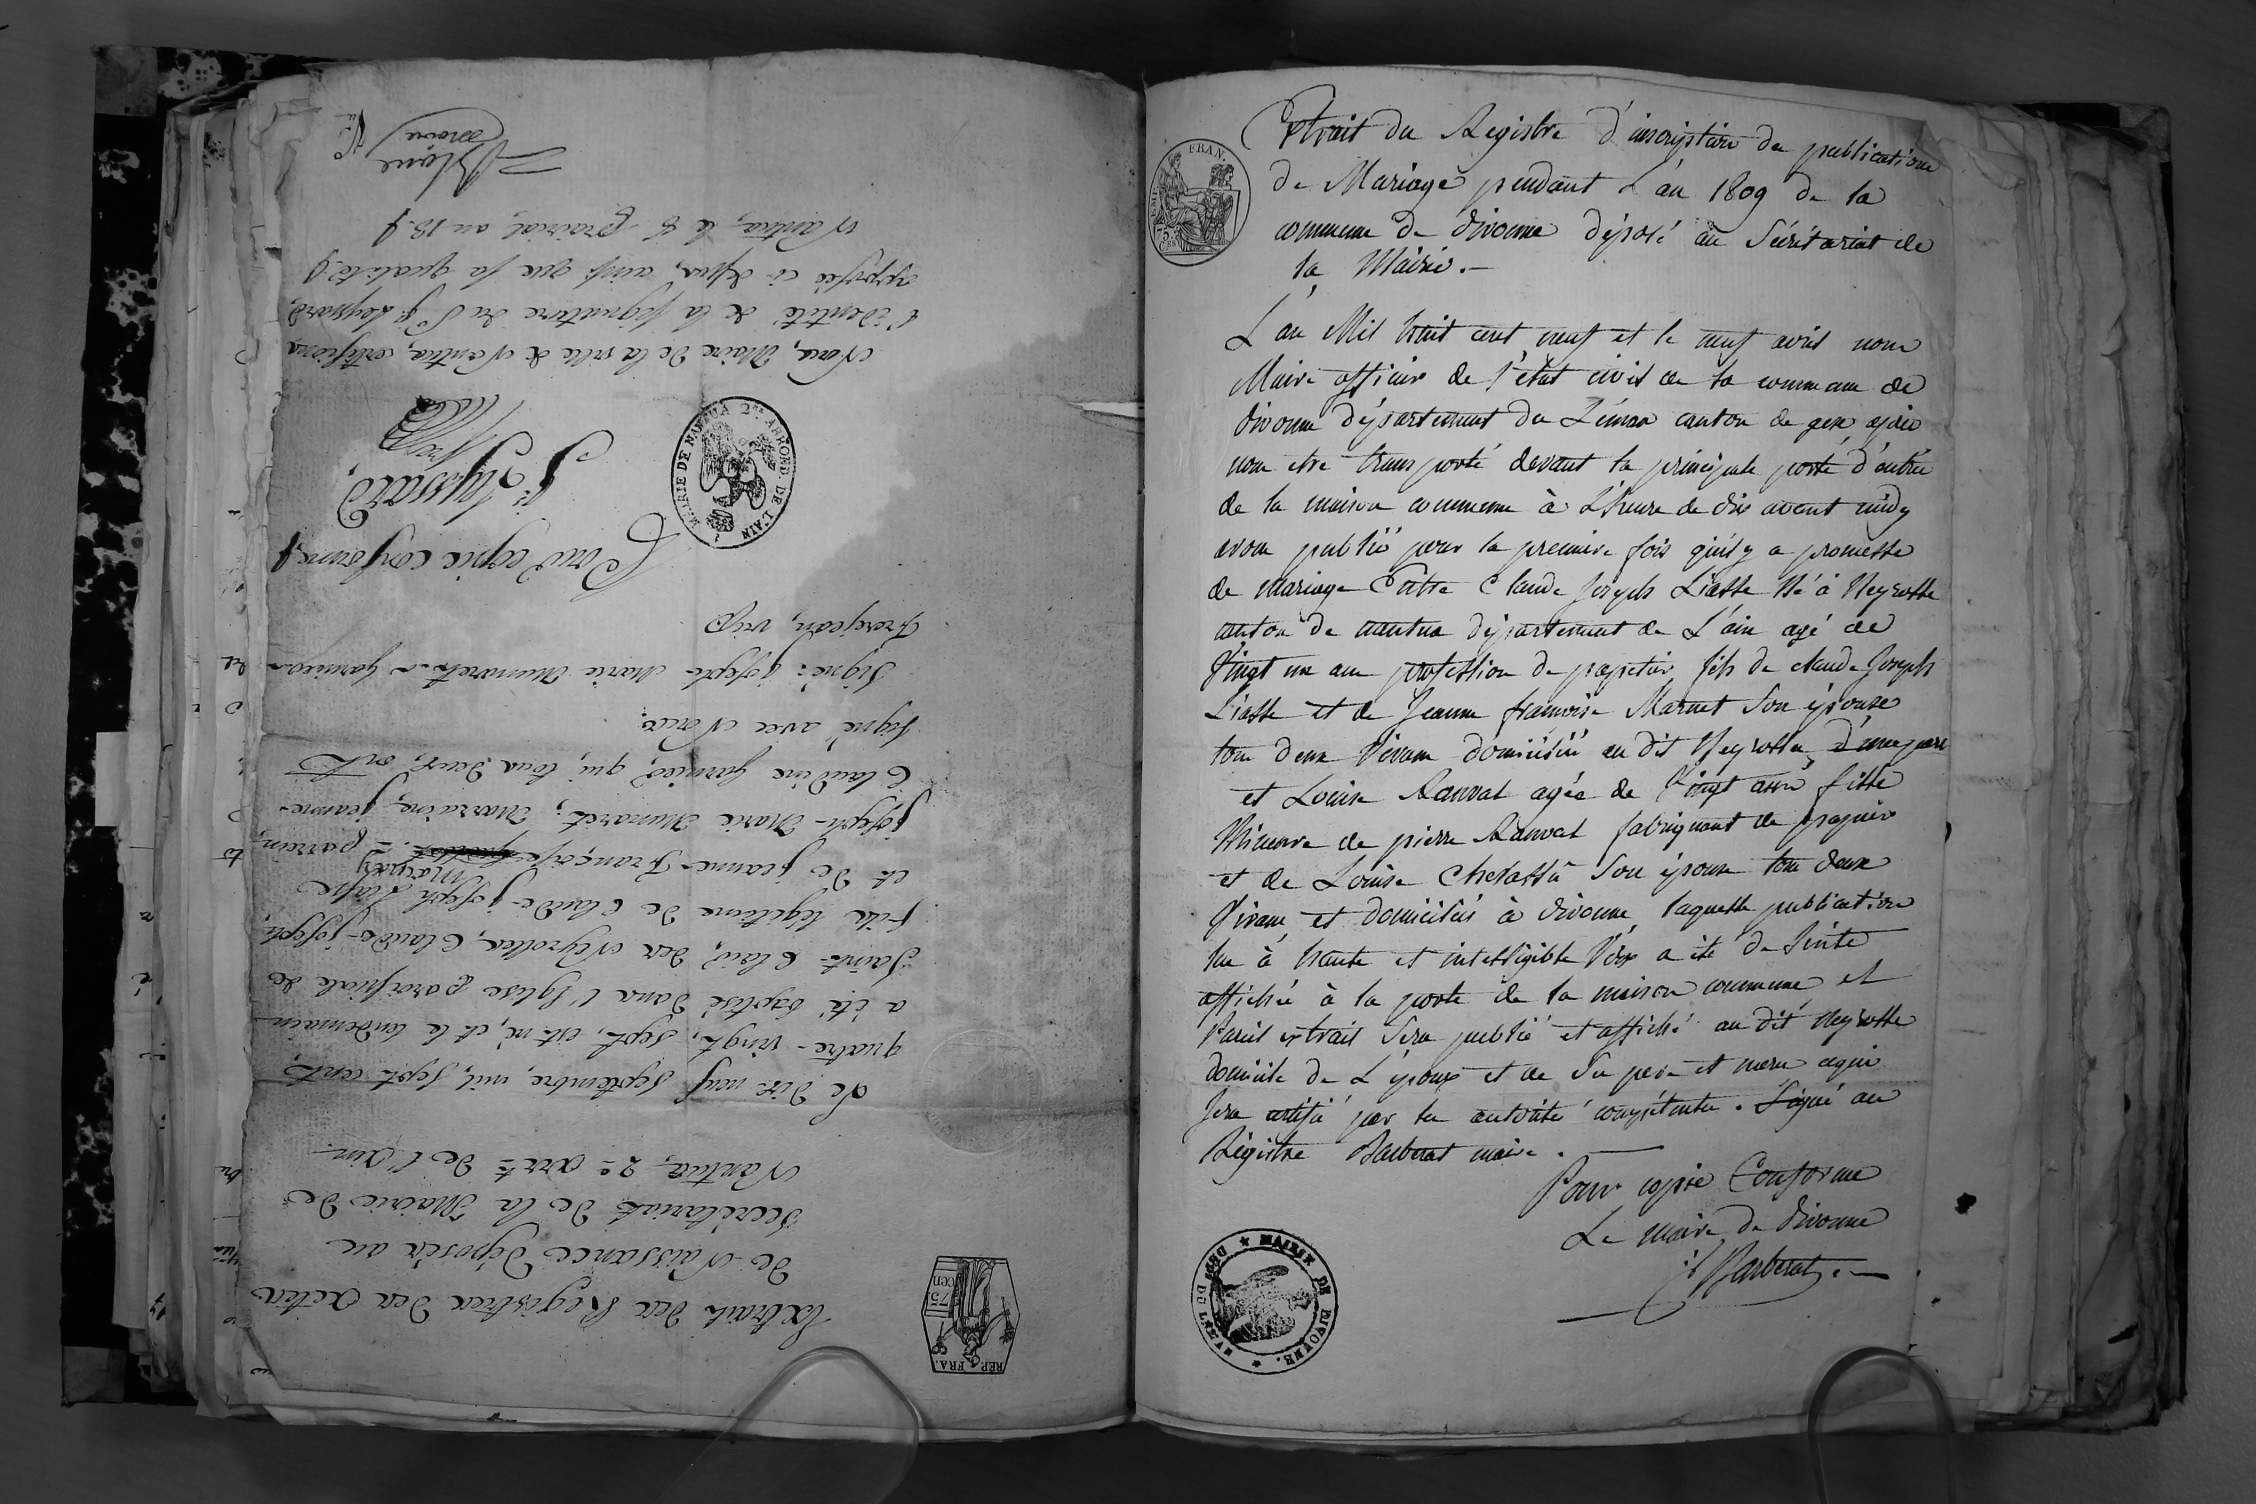 Extrait des Registres des actes
de Naissance déposés au
Secrétariat de la Mairie de
Nantua, 2e arrt. de l'Ain.
Le dix neuf septembre, mil, sept cents
quatre-vingt, sept, est né, et le lendemain
a été baptisé dans l'Eglise paroissiale de
Saint-Claude, des Neyrolles, Claude-joseph,
fils légitime de Claude-joseph Liasse
Marnet
et de jeanne-Françoise . parrain,
joseph-Marie Humaret; Marraine, jeanne-
Claudine garnier, qui tous deux, ont
signé avec Nous.
Signé: joseph Marie Humaret garnier
Frerejean, vic.
Pour copie conforme
Jussard,
Nous, Maire de la ville de Nantua, certifions
l'identité de la signature du Sr. Jussard,
apposée ci dessus, ainsi que sa qualité
Nantua, le 8 prairial, an 13.
maire
REP. FRA.
75 cen
MAIRIE DE NANTUA 2ME ARROND. DE L'AIN
Extrait du Registre d'inscription de publication
de Mariage pendant L'an 1809 de la
commune de divonne déposé au Sécrétariat de
la Mairie.-
FRAN.
75
CEN
L'an Mil huit cent neuf et le neuf avril nous
Maire officier de l'état civil de la commune de
divonne département du Léman canton de gex après
nous etre transporté devant la principale porte d'entrée
de la maison commune à L'heure de dix avant midy
avons publié pour la première fois qu'il y a promesse
de Mariage Entre Claude Joseph Liasse Né à Neyrolle
canton de nantua département de L'ain agé de
Vingt un ans profession de papetier fils de claude Joseph
Liasse et de Jeanne françoise Marnet Son épouse
tous deux Vivans domiciliés au dit Neyrolle, d'une part
et Louise Ranvat agée de Vingt ans fille
Mineure de pierre Ranvat fabriquant de papier
et de Louise Son épouse tous deux
Vivans et domiciliés à divonne, laquelle publication
lue à haute et intelligible Voix a été de Suite
affichée à la porte de la maison commune et
Pareil extrait Sera publié et affiché au dit Neyrolle
domicile de L'époux et de Ses pere et mere cequi
Sera certifié par les autorités compétentes. Signé au
Régistre Barberat maire.
Pour copie Conforme
Le maire de divonne
Barberat
MAIRIE DE DIVONNE. DEPT DU LEMAN